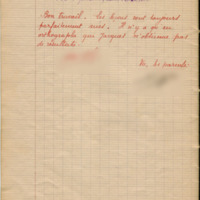 Bon travail. Les leçons sont toujours
parfaitement sues. Il n'y a qu'en
orthographe que Jacques n'obtienne pas
de résultats
Vu, les parents.